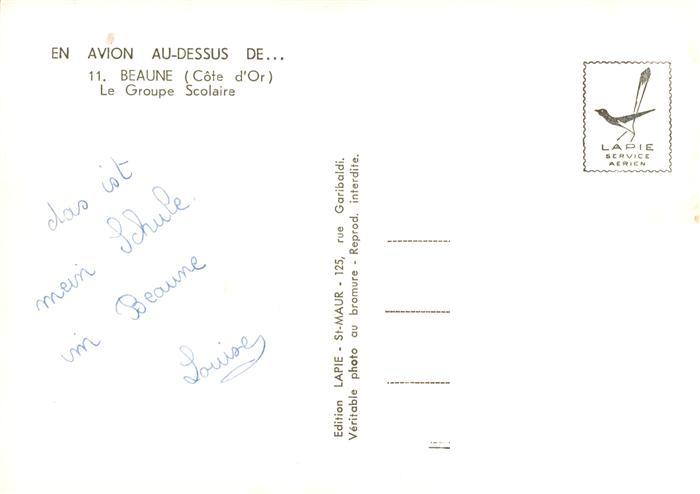 EN AVION AU-DESSUS DE...
11. BEAUNE (Côte d'Or)
Le Groupe Scolaire
das ist
mein Schule
in Beaune
Louise
Edition LAPIE - St-MAUR - 125, rue Garibaldi.
Véritable photo au bromure - Reprod. interdite.
LAPIE
SERVICE
AERIEN